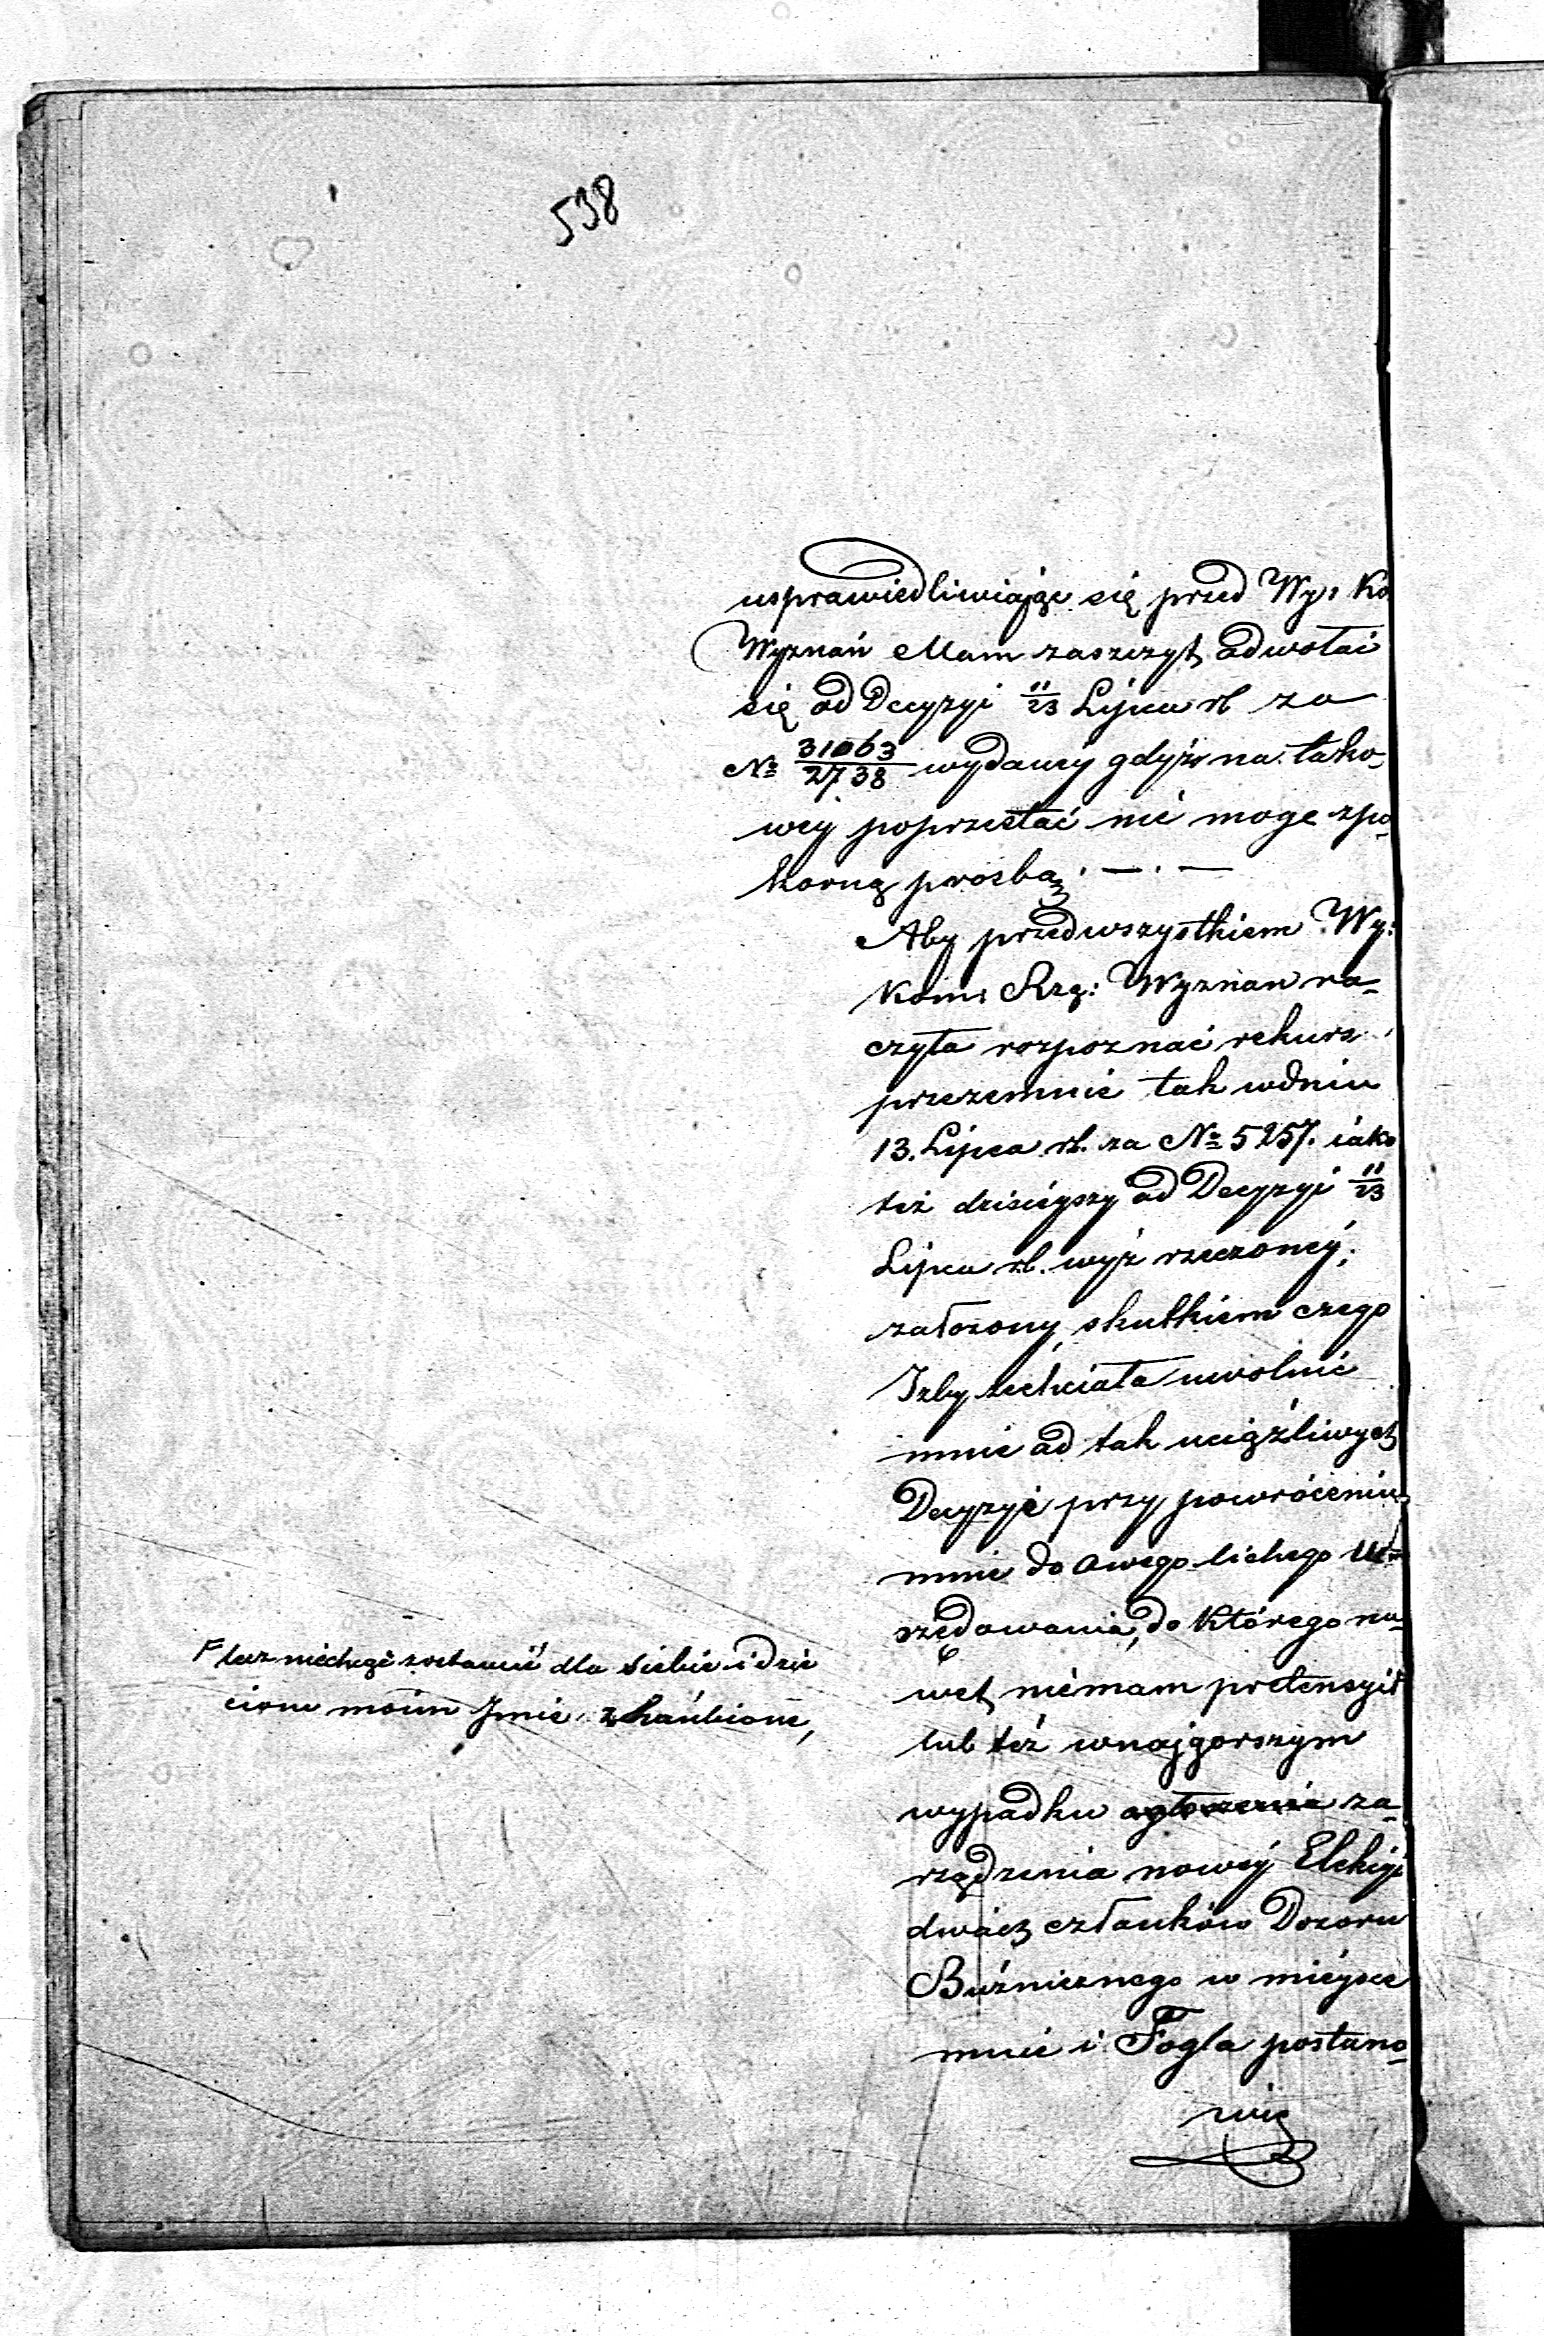 538
usprawiedliwiając się przed Wy: Ko
Wyznań Mam zaszczyt odwołać
się od Decyzyi 11/23 Lipca rb za
No 31063/2738 wydaney gdyż na tako-
wey poprzestać nie moge zpo-
korną prosbą. — . —
Aby przedwszystkiem Wy:
Kom: Rzą: Wyznan ra-
czyła rozpoznać rekurs
przezemnie tak wdniu
13. Lipca rb. za No 5257. iako
też dzisieyszy od Decyzyi 11/23
Lipca rb. wyż rzeczoney,
założony skutkiem czego
Izby zechciała uwolnić
mnie od tak uciążliwych
Decyzyi przy powróceniu
mnie do owego lichego U-
rzędowania, do którego na-
wet niémam pretensyi F
lub też wnajgorszym
wypadku za-
rządzenia nowéy Elekcyi
dwóch członków Dozoru
Bóżnicznego w mieysce
mnie i Fogla postano-
wić
F lecz niechcąc zostawić dla siebie i dzie
ciom moim Imie zhańbione,